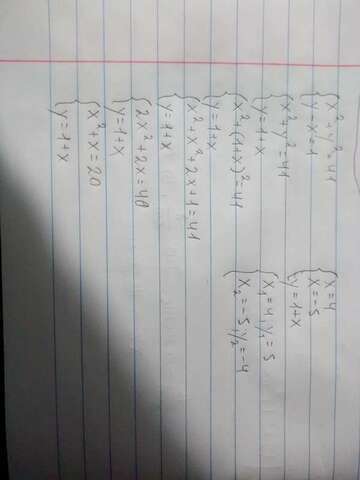 x²+y²=41
y-x=1
x²+y²=41
y=1+x
x²+(1+x)²=41
y=1+x
x²+x²+2x+1=41
y=1+x
2x²+2x=40
y=1+x
x²+x=20
y=1+x
x=4
x=-5
y=1+x
x₁=4, y₁=5
x₂=-5, y₂=-4